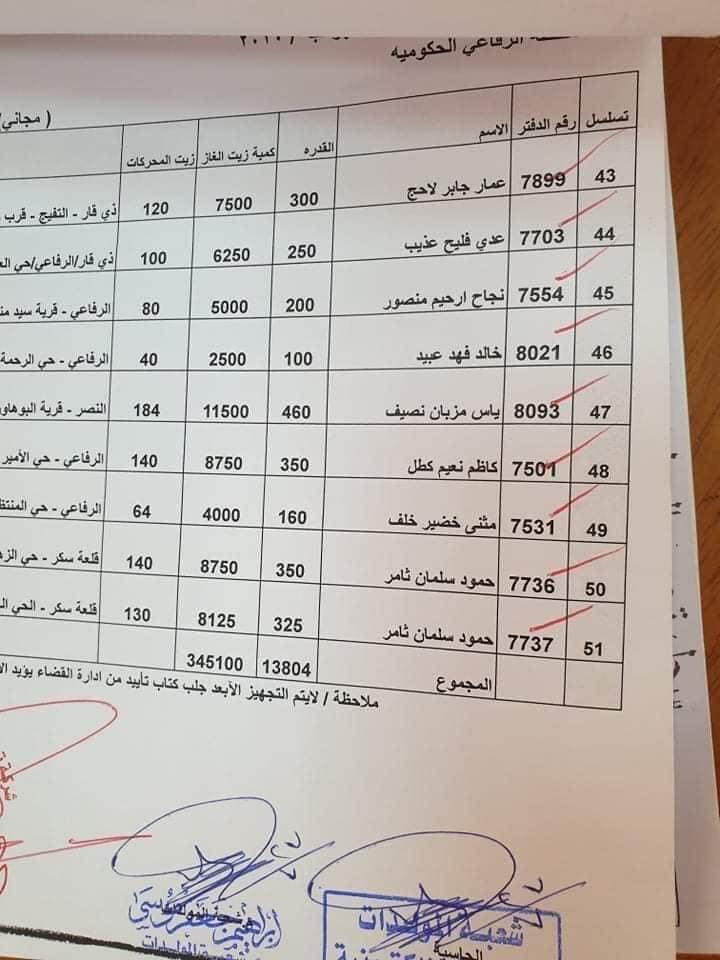 الرفاعي الحكوميه
( مجاني/
تسلسل رقم الدفتر الاسم القدره كمية زيت الغاز زيت المحركات
43 7899 عمار جابر لاحج 300 7500 120 ذي قار - التفيج - قرب
44 7703 عدي فليح عذيب 250 6250 100 ذي قار/الرفاعي/حي
45 7554 نجاح ارحيم منصور 200 5000 80 الرفاعي - قرية سيد
46 8021 خالد فهد عبيد 100 2500 40 الرفاعي - حي الرحمة
47 8093 ياس مزبان نصيف 460 11500 184 النصر - قرية البوهاو
48 7501 كاظم نعيم كطل 350 8750 140 الرفاعي - حي الأمير
49 7531 مثنى خضير خلف 160 4000 64 الرفاعي - حي المنتظ
50 7736 حمود سلمان ثامر 350 8750 140 قلعة سكر - حي الزه
51 7737 حمود سلمان ثامر 325 8125 130 قلعة سكر - الحي
المجموع 13804 345100
ملاحظة / لايتم التجهيز الأبعد جلب كتاب تأييد من ادارة القضاء يؤيد
شعبة المولدات
الحاسبة